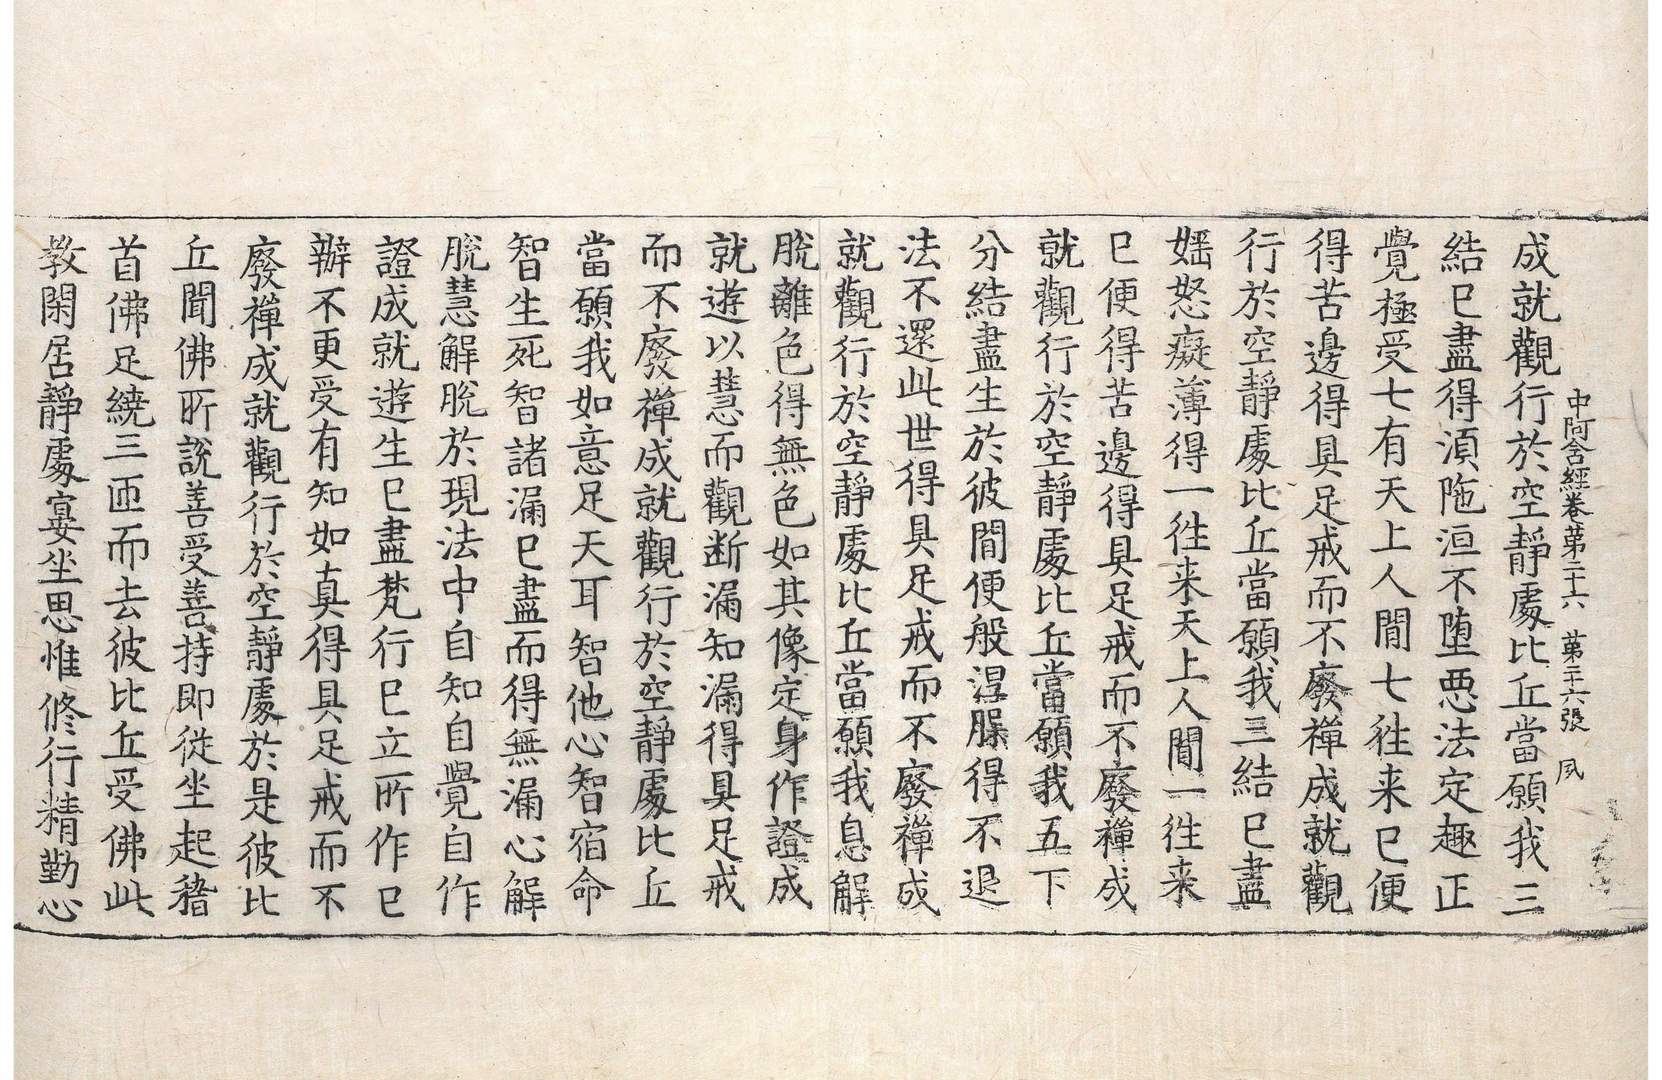 中阿含經卷第二十六　第三十六張　夙
成就觀行於空靜處比丘當願我三
結已盡得湏陁洹不堕惡法定趣正
覺極受七有天上人間七往来已便
得苦邊得具足戒而不廢禪成就觀
行於空靜處比丘當願我三結已盡
婬怒癡薄得一往来天上人間一往来
已便得苦邊得具足戒而不廢禪成
就觀行於空靜處比丘當願我五下
分結盡生於彼間便般涅槃得不退
法不還此世得具足戒而不廢禪成
就觀行於空靜處比丘當願我息解
脫離色得無色如其像定身作證成
就遊以慧而觀断漏知漏得具足戒
而不廢禪成就觀行於空靜處比丘
當願我如意足天耳智他心智宿命
智生死智諸漏已盡而得無漏心解
脫慧解脫於現法中自知自覺自作
證成就遊生已盡梵行已立所作已
辦不更受有知如真得具足戒而不
廢禪成就觀行於空靜處於是彼比
丘聞佛所說善受善持即從坐起稽
首佛足繞三匝而去彼比丘受佛此
教閑居靜處宴坐思惟修行精勤心